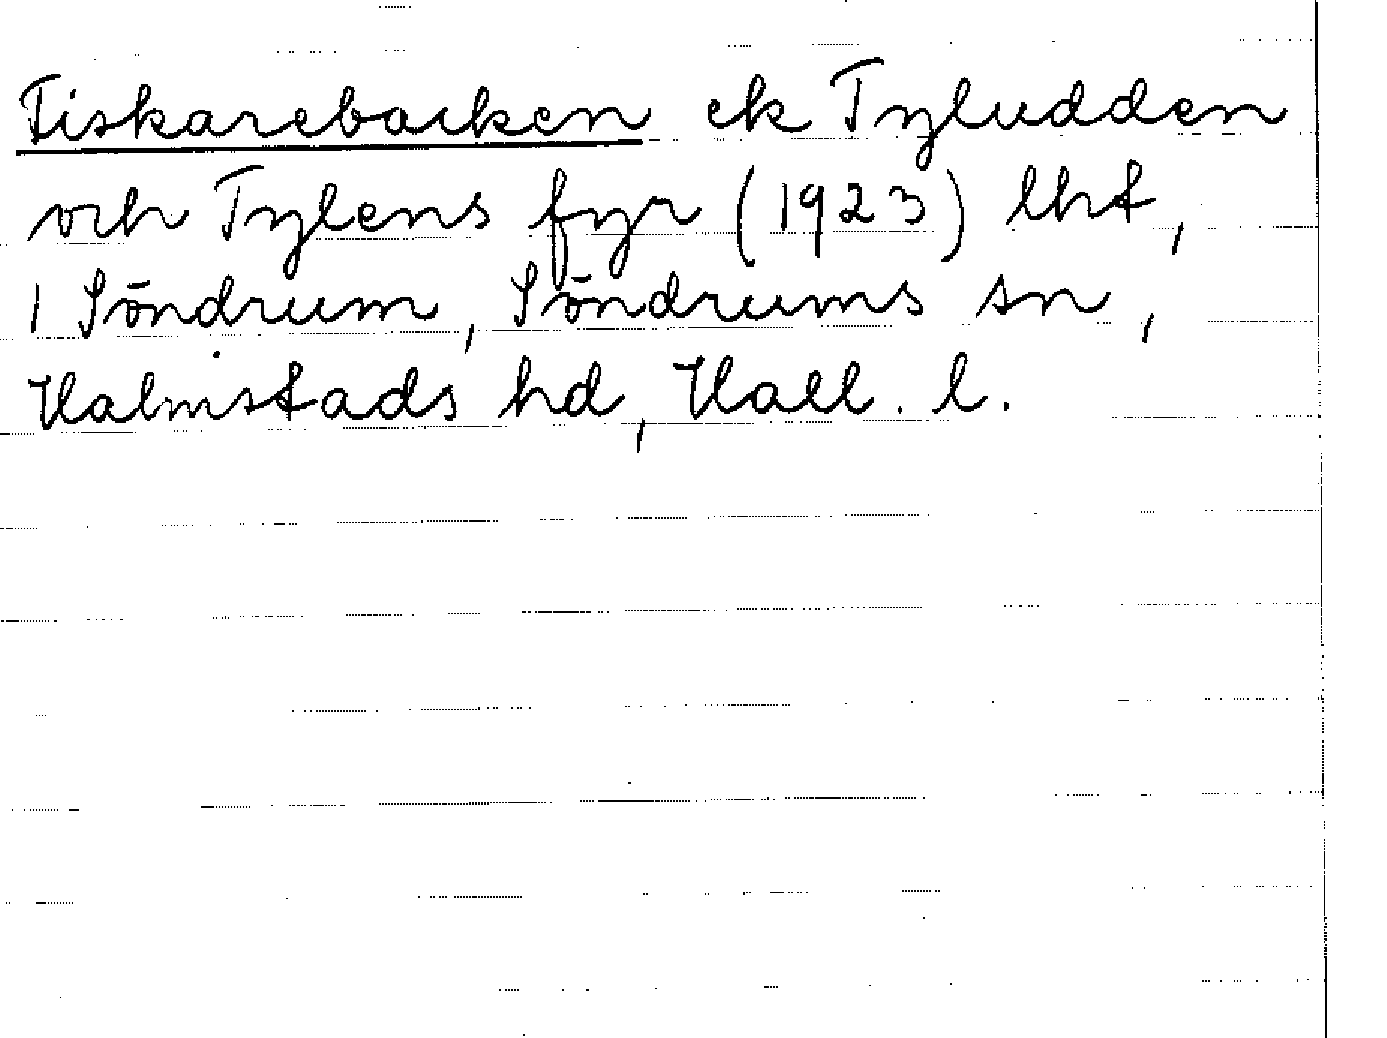 Fiskarebacken ek Tyludden
och Tylens fyr (1923) lht,
1 Söndrum, Söndrums sn,
Halmstads hd, Hall. l.